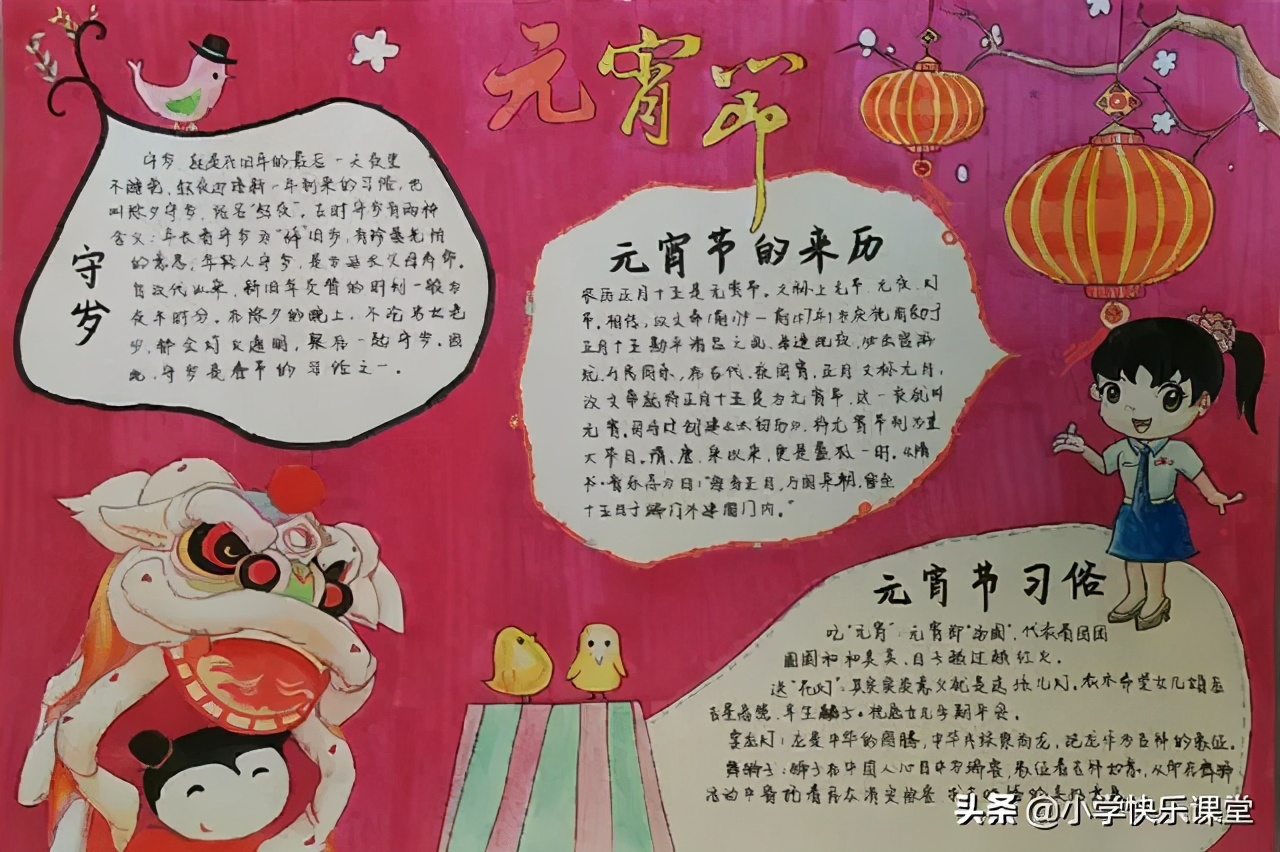 元宵节
守岁
守岁，就是在旧年的最后一天夜里
不睡觉，熬夜迎接新一年到来的习俗，也
叫除夕守岁，俗名“熬夜”。古时守岁有两种
含义：年长者守岁为“辞旧岁，有珍爱光阴
的意思，年轻人守岁，是为延长父母寿命。
自汉代以来，新旧年交替的时刻一般为
夜半时分。在除夕的晚上，不论男女老
少，都会灯火通明，聚在一起守岁。因
此，守岁是春节的习俗之一。
元宵节的来历
农历正月十五是元宵节。又称上元节、元夜、灯
节。相传，汉文帝(前179—前157年)
正月十五勘平诸吕之乱，出宫游
玩，与民同乐，在古代，夜同宵，正月又称元月，
汉文帝就将正月十五定为元宵节，这一夜就叫
元宵。司马迁创建《太初历》，将元宵节列为重
大节日。隋、唐、宋以来，更是盛极一时。《隋
书·音乐志》曰：“每当正月，万国来朝，留至
十五日于端门外建国门内，”
元宵节习俗
吃“元宵”：元宵即“汤圆”，代表着团团
圆圆和和美美，日子越过越红火。
送“花灯”：其实实质意义就是送孩儿灯。
吉星高照、年年
耍龙灯：龙是中华的图腾，中华民族崇尚龙，把龙作为吉祥的象征。
舞狮子：狮子在中国人心目中为瑞兽，象征着吉祥如意，从而在舞狮
活动中寄托着民众消灾除害、求吉
头条 @小学快乐课堂